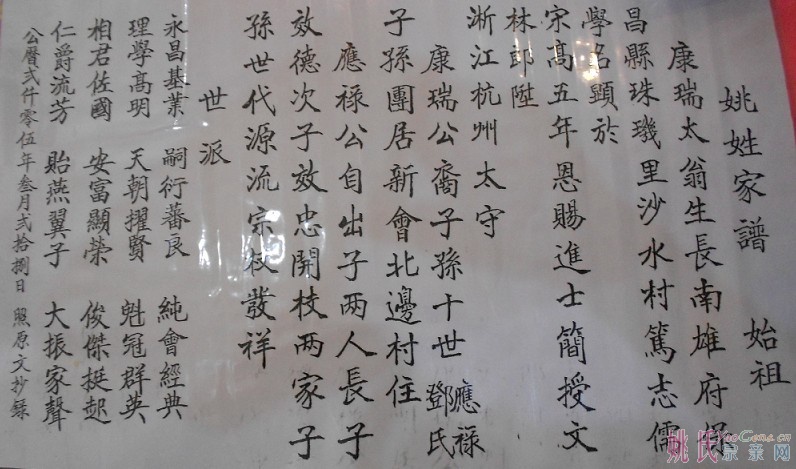 姚姓家譜 始祖
康瑞太翁生長南雄府保
昌縣珠璣里沙水村篤志儒
學名顕於
宋高五年恩賜進士簡授文
林郎陞
淅江杭州太守
康瑞公裔子孫十世應祿鄧氏
子孫團居新會北邊村住
應祿公自出子两人長子
效德次子效忠開枝两家子
孫世代源流宗枝發祥
世派
永昌基業 嗣衍蕃良 純會經典
理學高明 天朝擢賢 魁冠群英
相君佐國 安富顯榮 俊傑挺起
仁爵流芳 貽燕翼子 大振家聲
公曆弍仟零伍年叁月弍拾捌日 照原文抄錄
姚氏宗亲网
YaoGens.cn